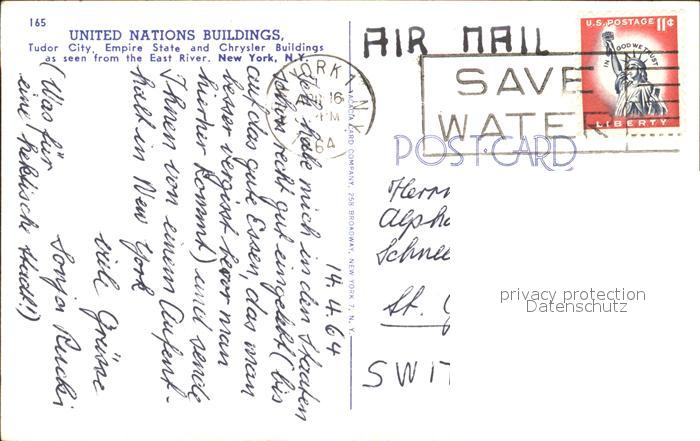 165
UNITED NATIONS BUILDINGS,
Tudor City, Empire State and Chrysler Buildings
as seen from the East River. New York, N.Y.
14.4.64
Ich habe mich in den Staaten
schon recht gut eingelebt (bis
auf das gute Essen, das man
besser vergisst bevor man
hierher kommt) und sende
Ihnen von einem Aufent-
halt in New York
viele Grüsse
Sonja
(Was für
eine hektische Stadt!)
COMPANY, 258 BROADWAY, NEW YORK 7, N. Y.
AIR MAIL
U.S. POSTAGE 11¢
IN GOD WE TRUST
LIBERTY
N.Y.
16
64
SAVE
WATER
POST CARD
Herrn
Alpho
Schnee
St. G
SWIT
privacy protection
Datenschutz